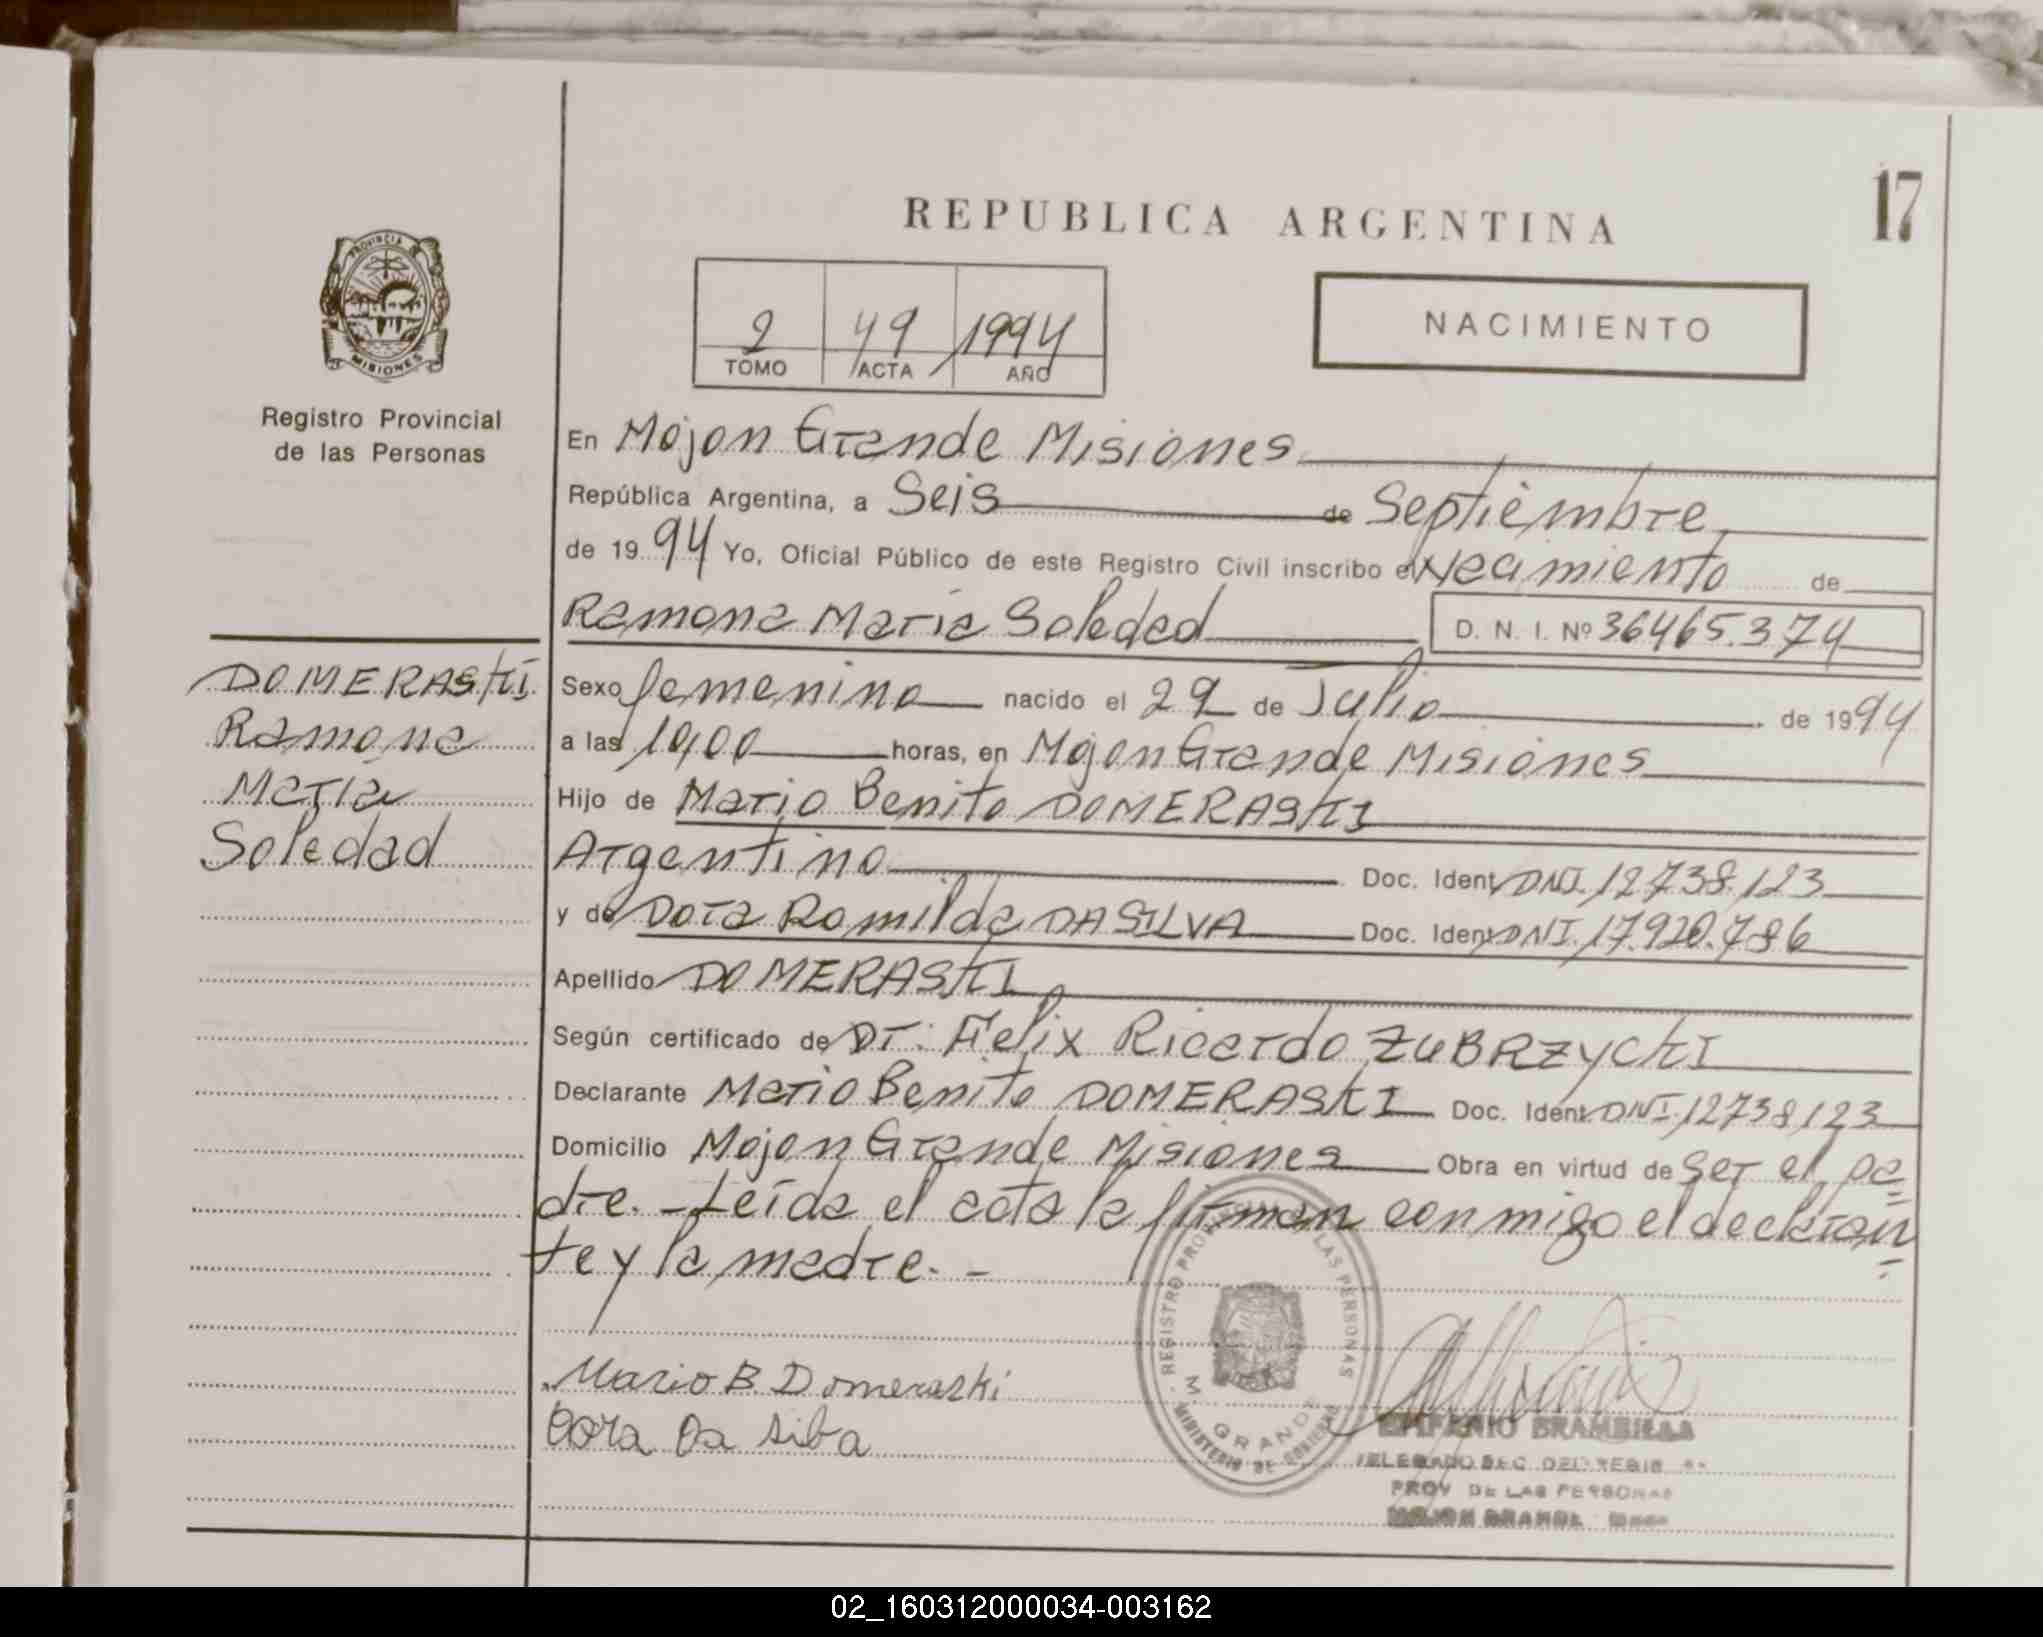 17
REPUBLICA ARGENTINA
PROVINCIA MISIONES
Registro Provincial
de las Personas
2 49 1994
TOMO ACTA AÑO
NACIMIENTO
En Mojon Grande Misiones
República Argentina, a Seis de Septiembre
de 1994 Yo, Oficial Público de este Registro Civil inscribo el Nacimiento de
Ramona Maria Soledad D. N. I. Nº 36465.374
DOMERASKI
Ramona
Maria
Soledad
Sexo femenino nacido el 29 de Julio de 1994
a las 10,00 horas, en Mojon Grande Misiones
Hijo de Mario Benito DOMERASKI
Argentino Doc. Ident DNI. 12738.123
y de Dora Romilda DA SILVA Doc. Ident DNI. 17.920.786
Apellido DOMERASKI
Según certificado de Dr. Felix Ricardo ZUBRZYCKI
Declarante Mario Benito DOMERASKI Doc. Ident. DNI. 12738123
Domicilio Mojon Grande Misiones Obra en virtud de Ser el pa=
dre. - Leída el acta la firman conmigo el declaran=
te y la madre. -
Mario B Domeraski
Dora Da Silba
REGISTRO PROVINCIAL DE LAS PERSONAS
M. GRANDE
MINISTERIO DE GOBIERNO
EUGENIO BRAMBILLA
PROV DE LAS PERSONAS
MOJON GRANDE
02_160312000034-003162